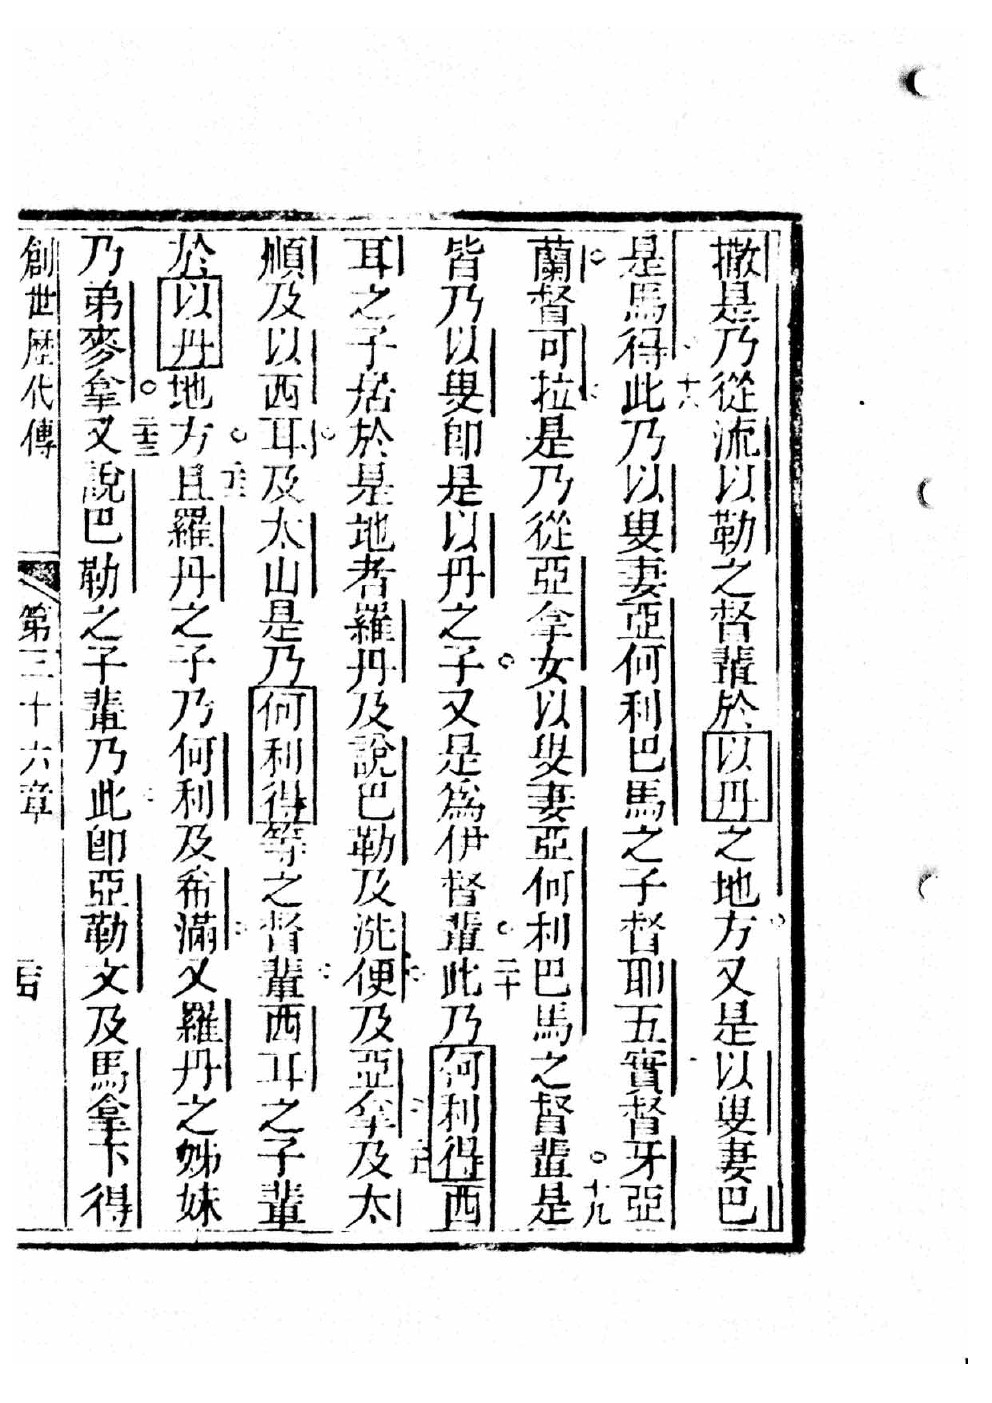 撒是乃從流以勒之督輩於以丹之地方又是以叟妻巴
是馬得此十八乃以叟妻亞何利巴馬之子督耶五實督牙亞
蘭督可拉是乃從亞拿女以叟妻亞何利巴馬之督輩是十九
皆乃以叟即是以丹之子又是為伊督輩此二十乃何利得西
耳之子居於是地者羅丹及說巴勒及洗便及亞拿及太
順及以西耳及太山是乃何利得等之督輩西耳之子輩
於以丹地方且羅丹之子乃何利及希滿又羅丹之姊妹
乃弟麥拿又二十三說巴勒之子輩乃此即亞勒文及馬拿下得
創世歷代傳 第三十六章